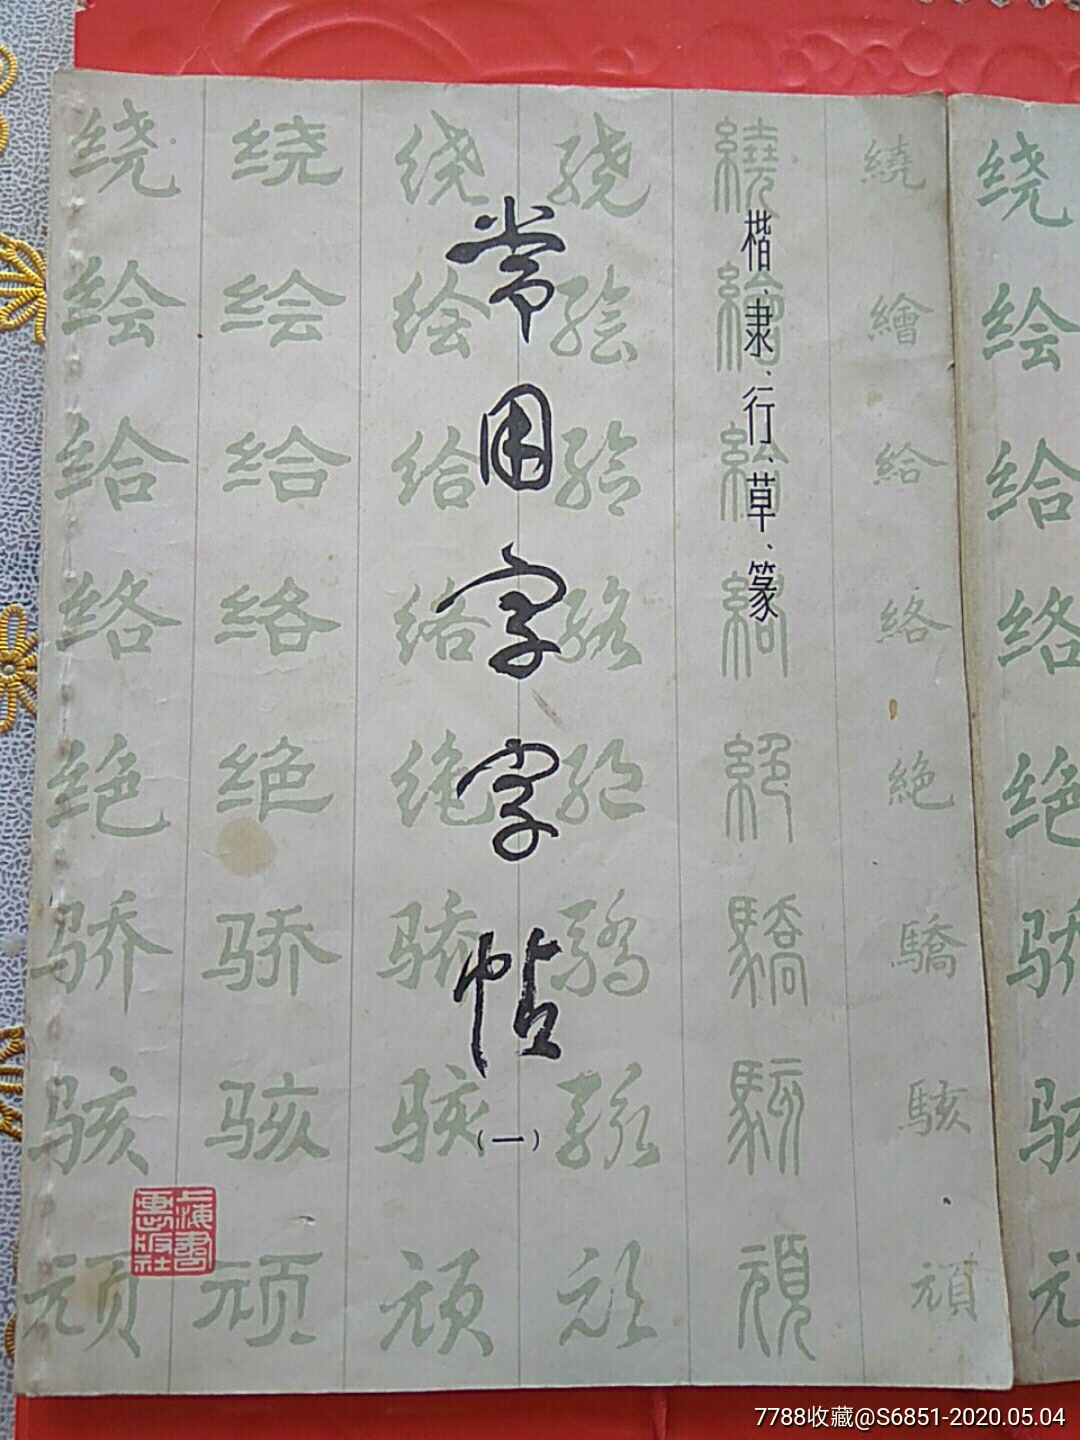 常用字字帖
（一）
楷、隶、行、草、篆
绕 绕 绕 绕 繞 繞 绕
绘 绘 绘 绘 繪 繪 绘
给 给 给 给 給 給 给
络 络 络 络 絡 絡 络
绝 绝 绝 绝 絕 絕 绝
骄 骄 骄 骄 驕 驕 骄
骇 骇 骇 骇 駭 駭 骇
顽 顽 顽 顽 頑 頑
上海書
畫出版社
7788收藏@S6851-2020.05.04